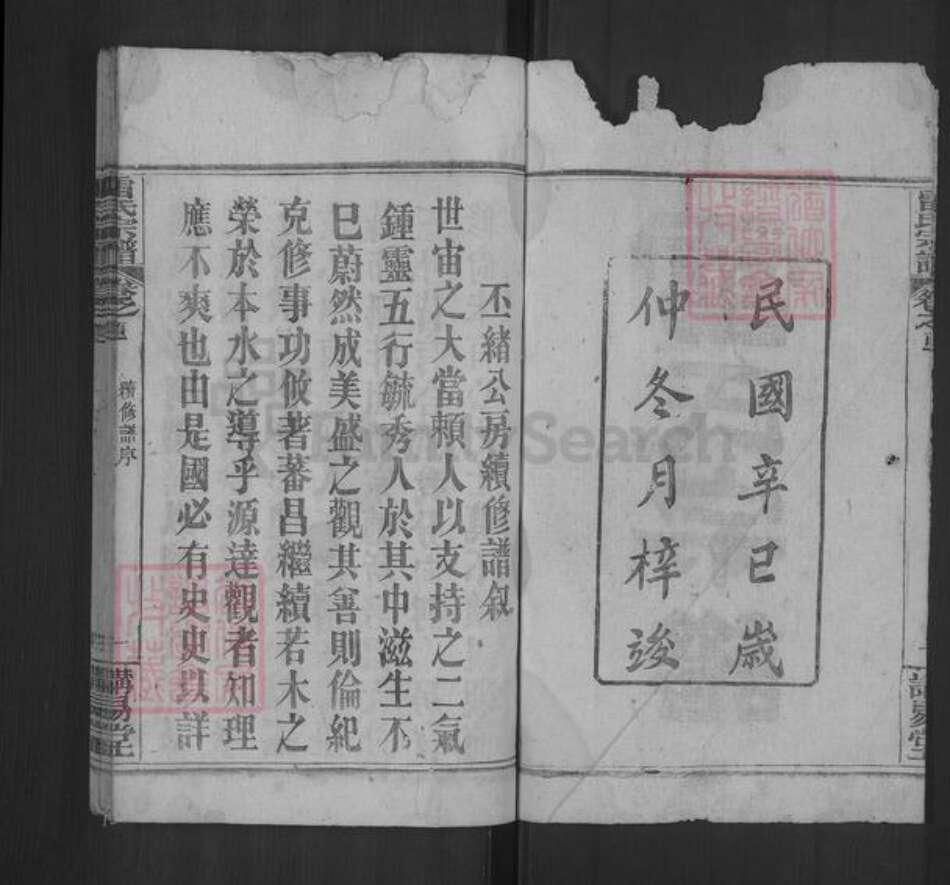 民國辛巳歲
仲冬月梓竣
丕緒公房續修譜叙
世宙之大當賴人以支持之二氣
鍾靈五行毓秀人於其中滋生不
已蔚然成美盛之觀其善則倫紀
克修事功攸著蕃昌繼續若木之
榮於本水之導乎源達觀者知理
應不爽也由是國必有史史具詳
雷氏宗譜
卷之
續修譜序
一
講易堂
FamilySearch